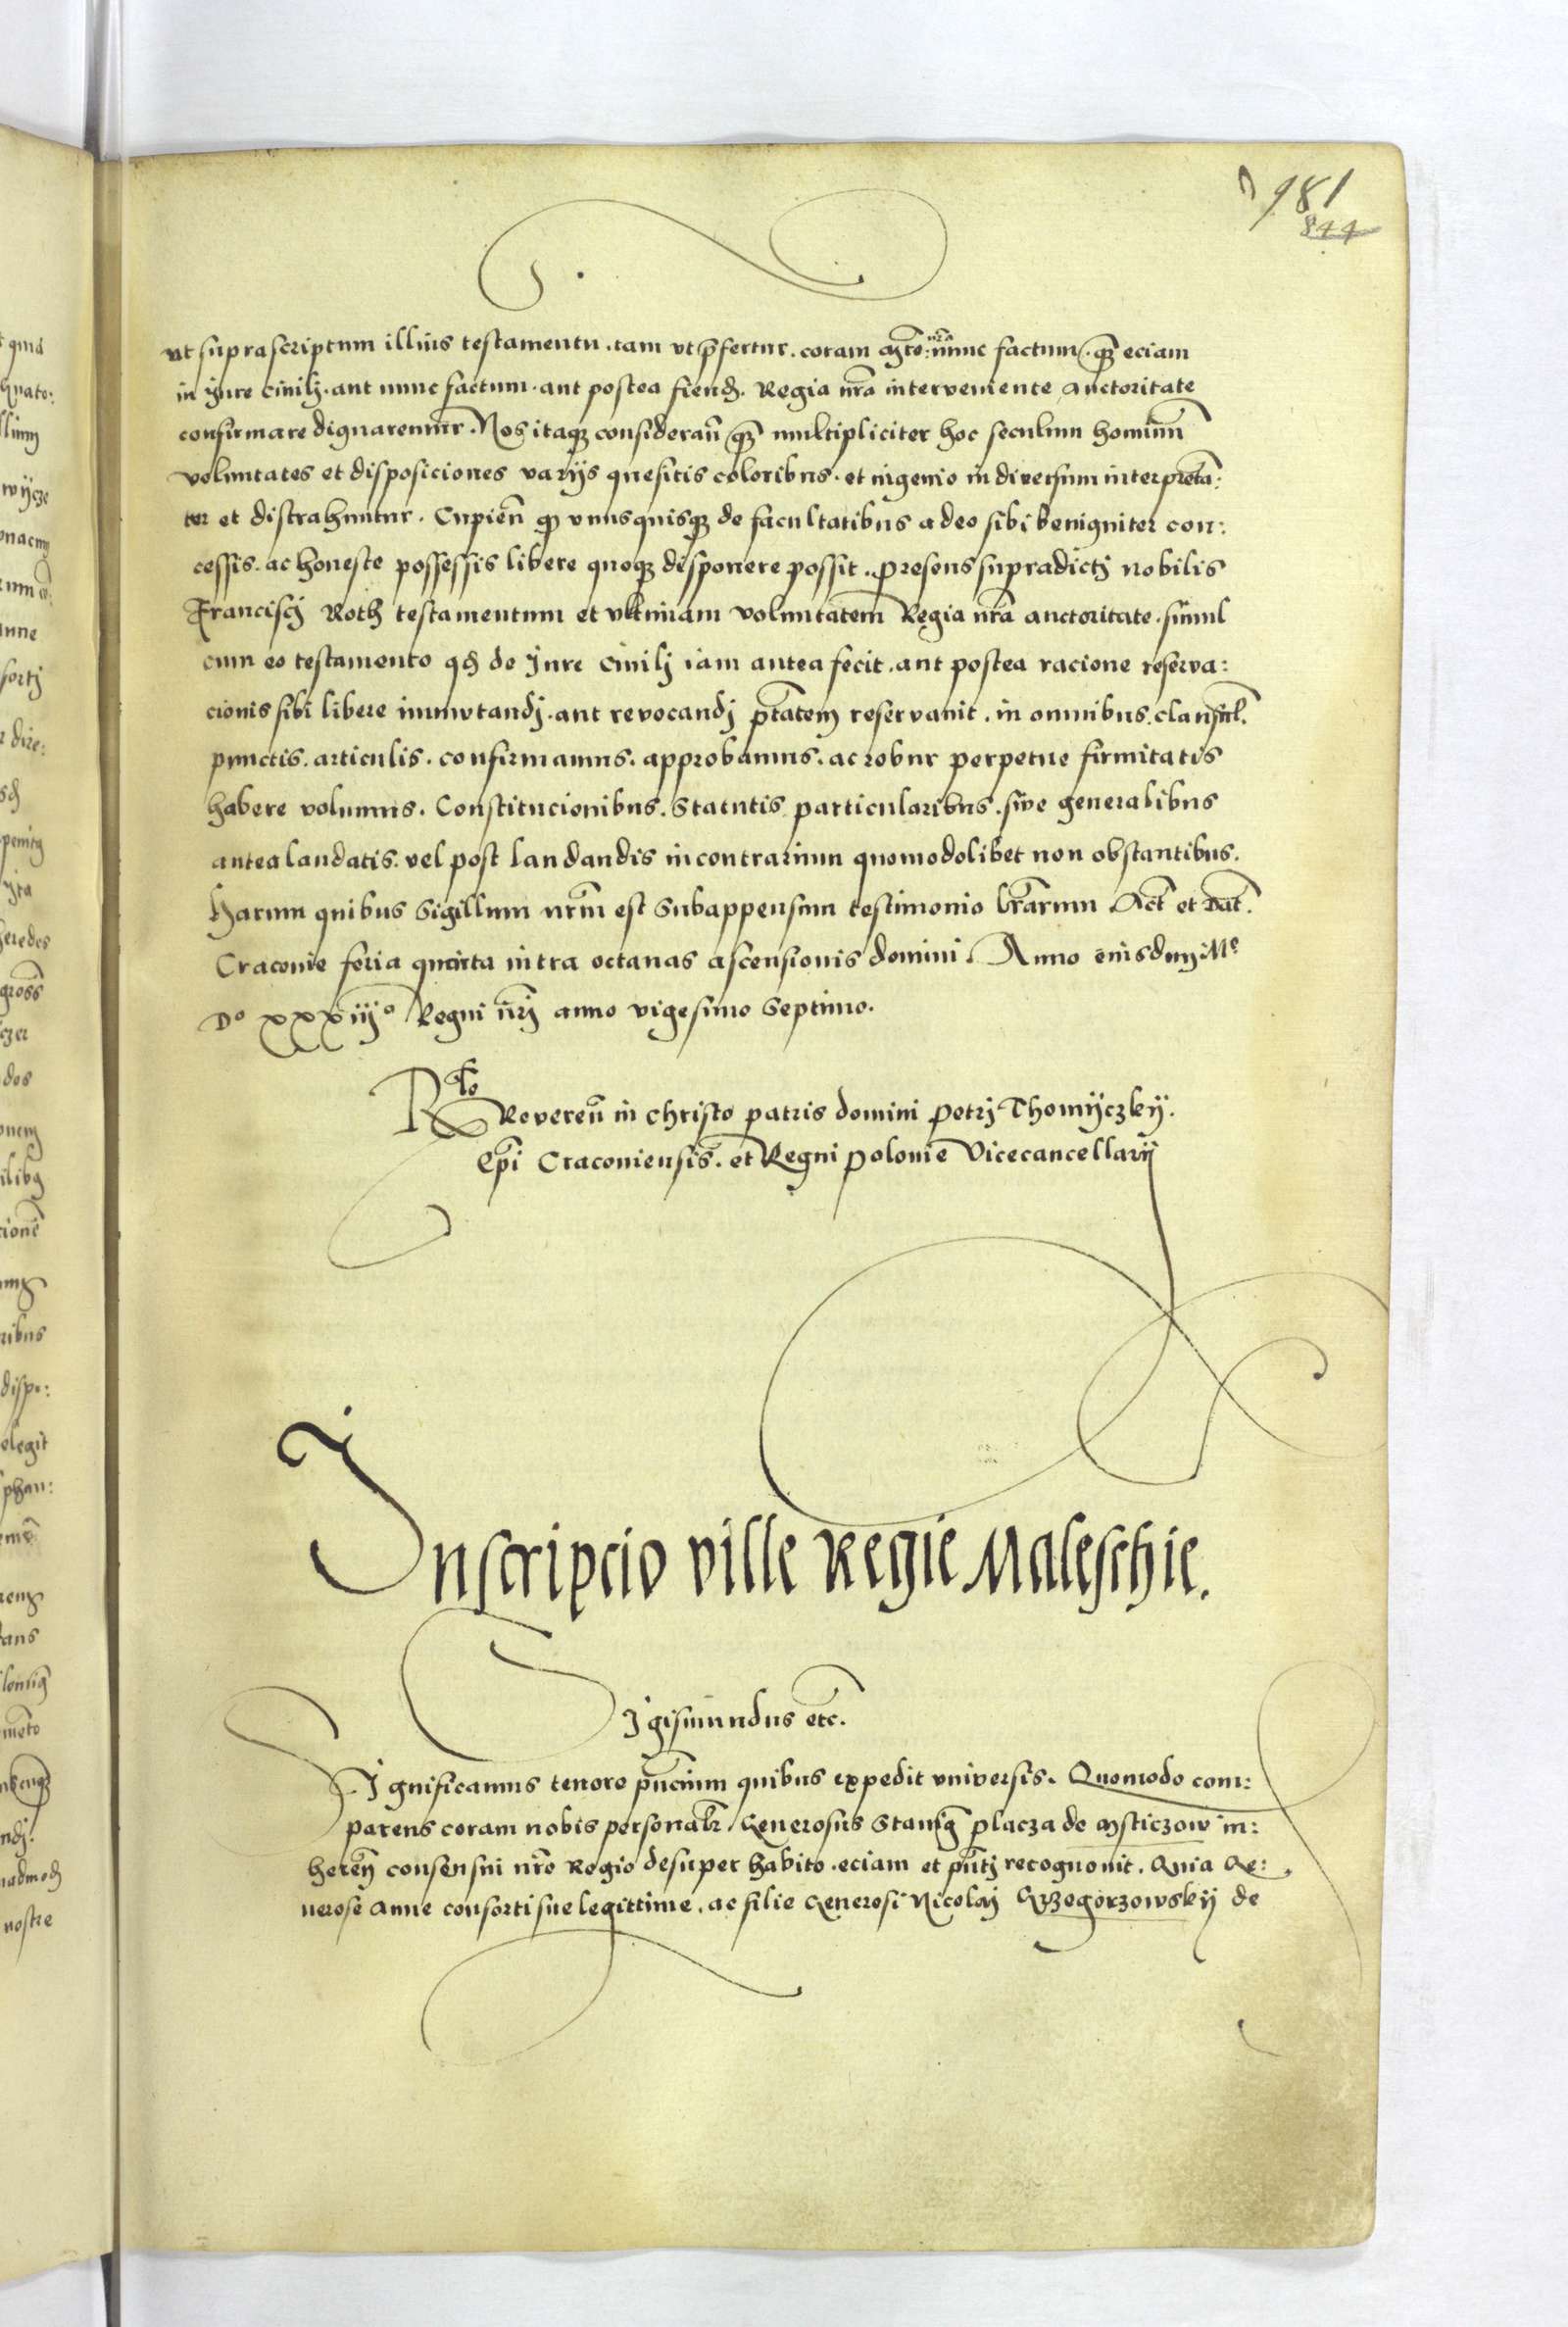 981
844
ut suprascriptum illius testamentu. tam ut p̄fertur. coram Mte: nr̄a nunc factum. q̄ȝ eciam
in Jure Civilj. aut nunc factum. aut postea fiend. Regia nr̄a interveniente auctoritate
confirmare dignaremur. Nos itaqȝ consideran̄ q̄ȝ multipliciter hoc seculum hominū
voluntates et disposiciones varijs quesitis coloribus. et ingenio in diversum interpreta:
tur et distrahuntur. Cupien̄ qȝ vnusquisqȝ de facultatibus a deo sibi benigniter con:
cessis. ac honeste possessis libere quoqȝ disponere possit. presens supradictj nobilis
Franciscj Roth testamentum et vltimam voluntatem̄ Regia nr̄a auctoritate. simul
cum eo testamento qd de Jure Civilj iam antea fecit. aut postea racione reserva:
cionis sibi libere immutandj. aut revocandj ptātem reservavit. in omnibus. clausul.
punctis. articulis. confirmamus. approbamus. ac robur perpetue firmitatis
habere volumus. Constitucionibus. Statutis particularibus. sive generalibus
antea laudatis. vel post laudandis incontrarium quomodolibet non obstantibus.
Harum quibus Sigillum nr̄m est Subappensum testimonio lr̄arum Act̄ et dat̄.
Cracovie feria quinta intra octavas ascensionis domini. Anno eiusdem Mo
Do xxxiijo Regni nr̄j anno vigesimo Septimo.
Rlo Reveren̄ in christo patris domini petrj Thomijczkij.
Ep̄i Cracoviensis. et Regni polonie Vicecancellarij
Inscripcio ville Regie Maleschie.
Sigismundus etc.
Significamus tenore pn̄cium quibus expedit vniversis. Quomodo com:
parens coram nobis personalr̄. Generosus Stanis placza de Msticzow in:
heren̄ consensui nr̄o Regio desuper habito. eciam et pn̄tj recognovit. Quia Ge:
nerose Anne consorti sue legittime. ac filie Generosi Nicolaj Grzegorzowskij de